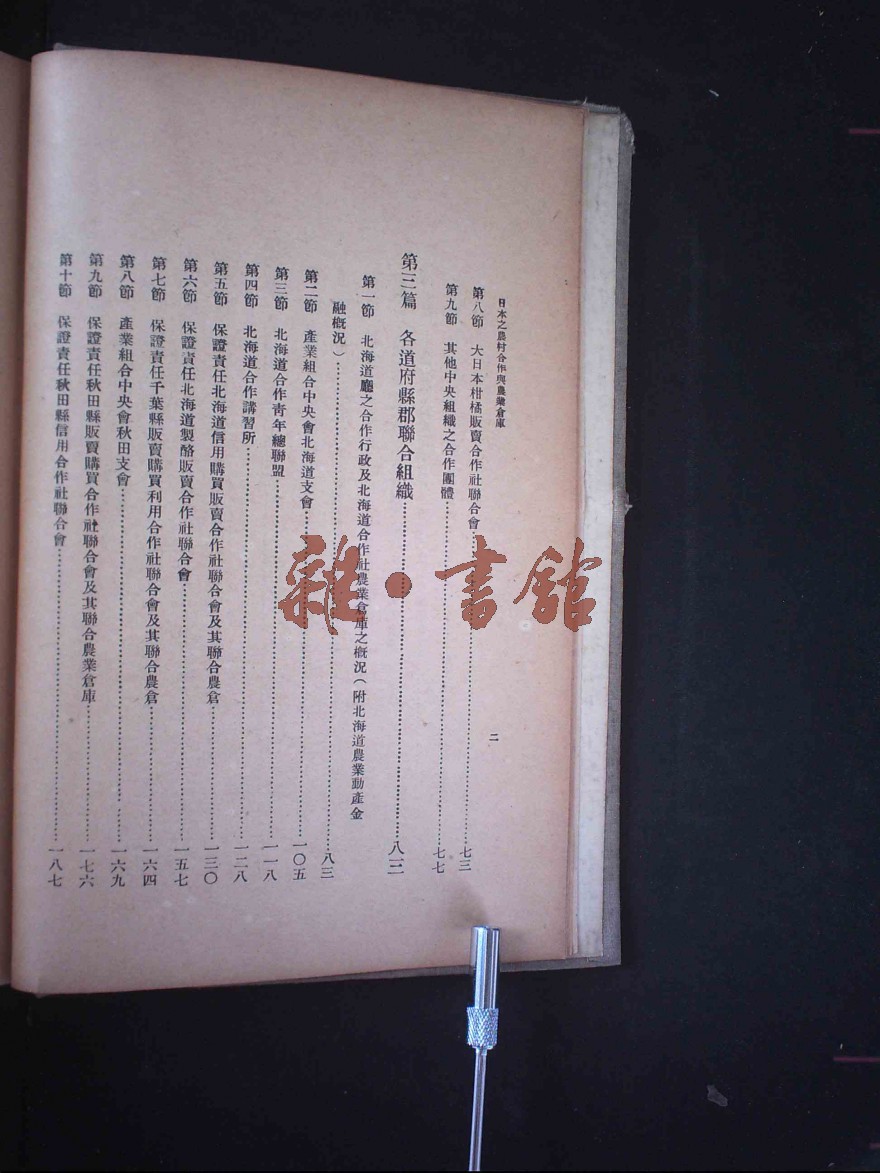 日本之農村合作與農業倉庫
二
第八節　大日本柑橘販賣合作社聯合會……七三
第九節　其他中央組織之合作團體……七七
第三篇　各道府縣郡聯合組織……八三
第一節　北海道廳之合作行政及北海道合作社農業倉庫之概況（附北海道農業動產金
融概況）……八三
第二節　產業組合中央會北海道支會……一〇五
第三節　北海道合作靑年總聯盟……一一八
第四節　北海道合作講習所……一二八
第五節　保證責任北海道信用購買販賣合作社聯合會及其聯合農倉……一三〇
第六節　保證責任北海道製酪販賣合作社聯合會……一五七
第七節　保證責任千葉縣販賣購買利用合作社聯合會及其聯合農倉……一六四
第八節　產業組合中央會秋田支會……一六九
第九節　保證責任秋田縣販賣購買合作社聯合會及其聯合農業倉庫……一七六
第十節　保證責任秋田縣信用合作社聯合會……一八七
雜·書館